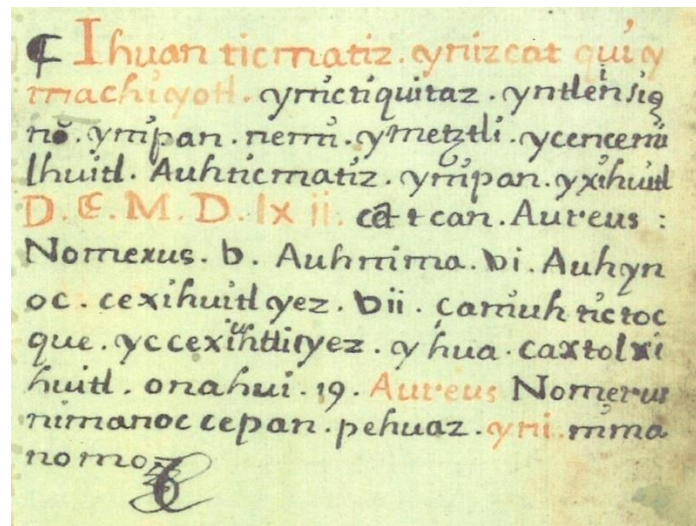 ¶ Ihuan ticmatiz. ynizcat qui y
machiyotl. ynictiquitaz. yntlen sig
nō. ynipan. nemi. ymetztli. ycencemi
lhuitl. Auhticmatiz. ynipan. yxihuitl
D. E. M. D. lx ii. can. Aureus :
Nomerus. b. Auhnima. vi. Auhyn
oc. cexihuitl yez. vii. caniuh tictoc
que. yccexihuitl yez. yhua. caxtolxi
huitl. onahui. 19. Aureus Nomerus
nimanoc cepan. pehuaz. yni. nima